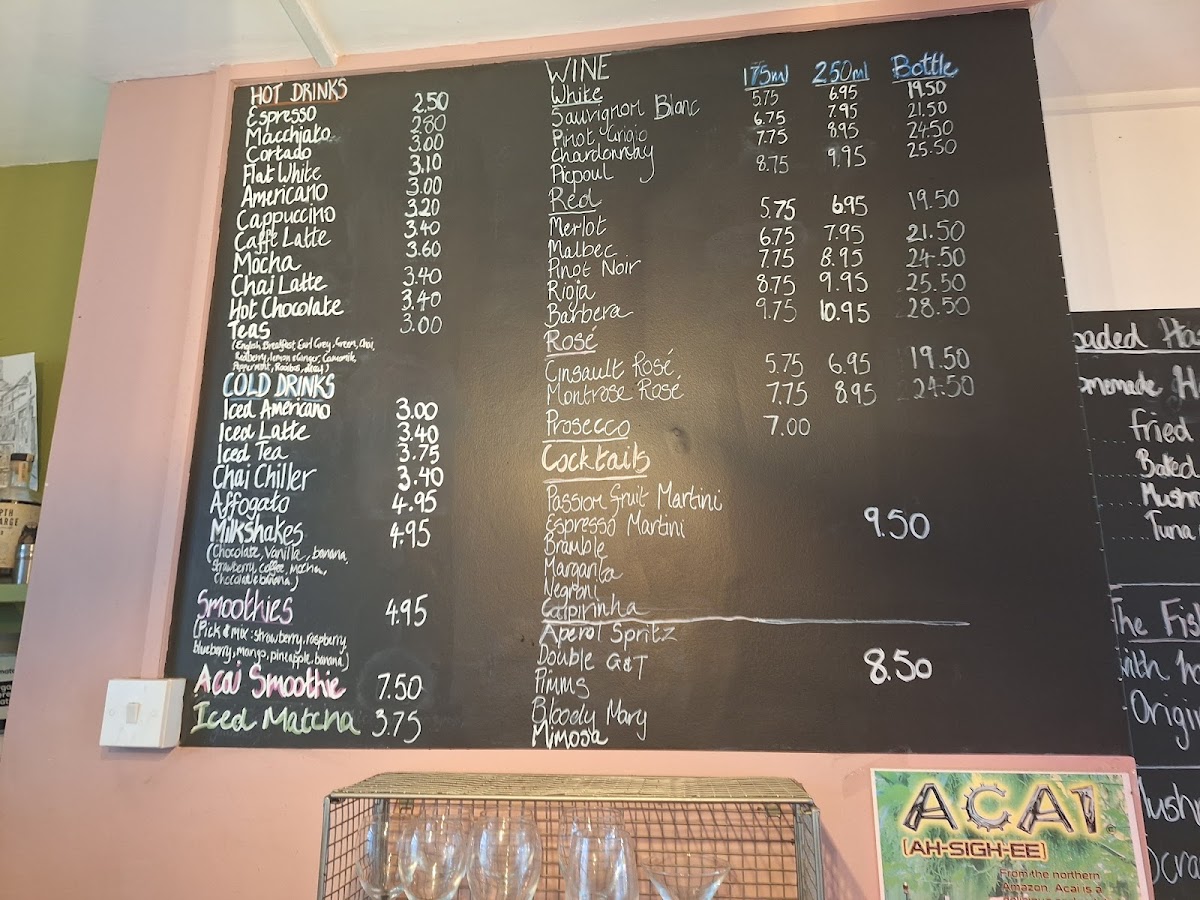 HOT DRINKS
Espresso 2.50
Macchiato 2.80
Cortado 3.00
Flat White 3.10
Americano 3.00
Cappuccino 3.20
Caffe Latte 3.40
Mocha 3.60
Chai Latte 3.40
Hot Chocolate 3.40
Teas 3.00
(English Breakfast, Earl Grey, Green, Chai,
Redberry, lemon & Ginger, Camomile
Peppermint, Rooibos,
COLD DRINKS
Iced Americano 3.00
Iced Latte 3.40
Iced Tea 3.75
Chai Chiller 3.40
Affogato 4.95
Milkshakes 4.95
(Chocolate, Vanilla, banana,
Strawberry, coffee, mocha,
Chocolate & banana)
Smoothies 4.95
(Pick & mix: strawberry, raspberry,
blueberry, mango, pineapple, banana)
Acai Smoothie 7.50
Iced Matcha 3.75
WINE 175ml 250ml Bottle
White
Sauvignon Blanc 5.75 6.95 19.50
Pinot Grigio 6.75 7.95 21.50
Chardonnay 7.75 8.95 24.50
Picpoul 8.75 9.95 25.50
Red
Merlot 5.75 6.95 19.50
Malbec 6.75 7.95 21.50
Pinot Noir 7.75 8.95 24.50
Rioja 8.75 9.95 25.50
Barbera 9.75 10.95 28.50
Rosé
Cinsault Rosé, 5.75 6.95 19.50
Montrose Rosé 7.75 8.95 24.50
Prosecco 7.00
Cocktails
Passion fruit Martini
Espresso Martini 9.50
Bramble
Margarita
Negroni
Caipirinha
Aperol Spritz
Double G&T 8.50
Pimms
Bloody Mary
Mimosa
oaded Ha
omemade H
fried
Baked
Mushr
Tuna
The Fis
with ho
Origin
Mush
ocra
PTH
ARGE
ACAI
(AH-SIGH-EE)
From the northern
Amazon, Acai is a